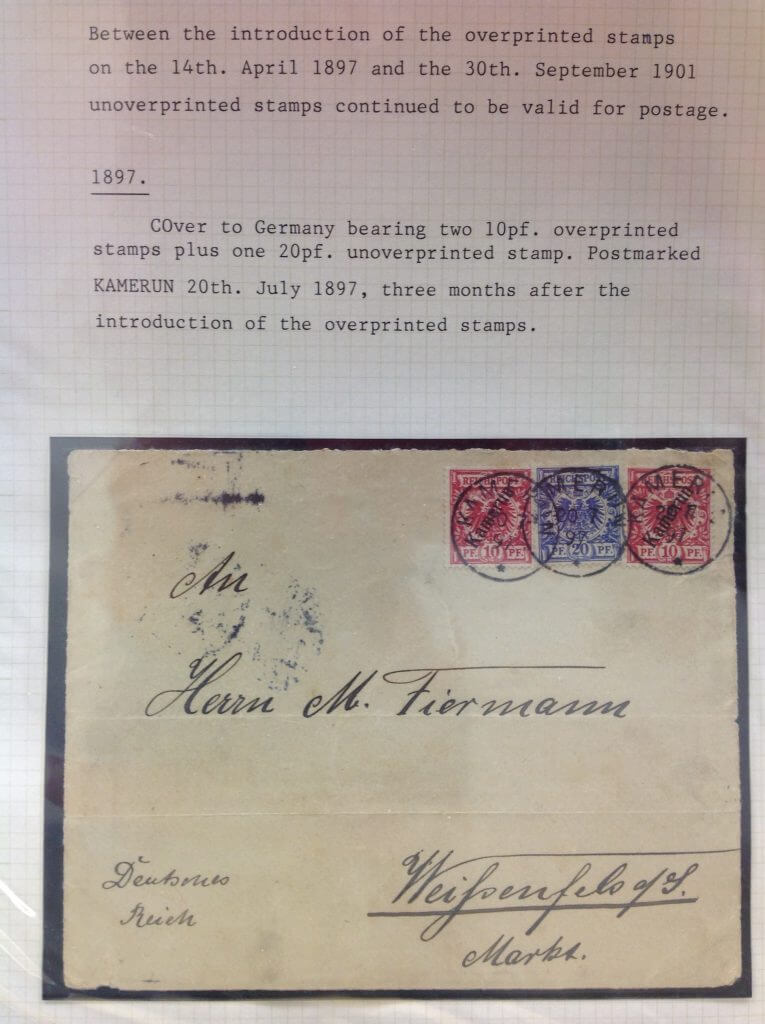 Between the introduction of the overprinted stamps
on the 14th. April 1897 and the 30th. September 1901
unoverprinted stamps continued to be valid for postage.
1897.
COver to Germany bearing two 10pf. overprinted
stamps plus one 20pf. unoverprinted stamp. Postmarked
KAMERUN 20th. July 1897, three months after the
introduction of the overprinted stamps.
REICHSPOST REICHSPOST REICHSPOST
KAMERUN KAMERUN KAMERUN
Kamerun Kamerun
20 7
97
PF. 10 PF. PF. 20 PF. PF. 10 PF.
An
Herrn M. Tiermann
Deutsches
Reich
Weißenfels a/S.
Markt.